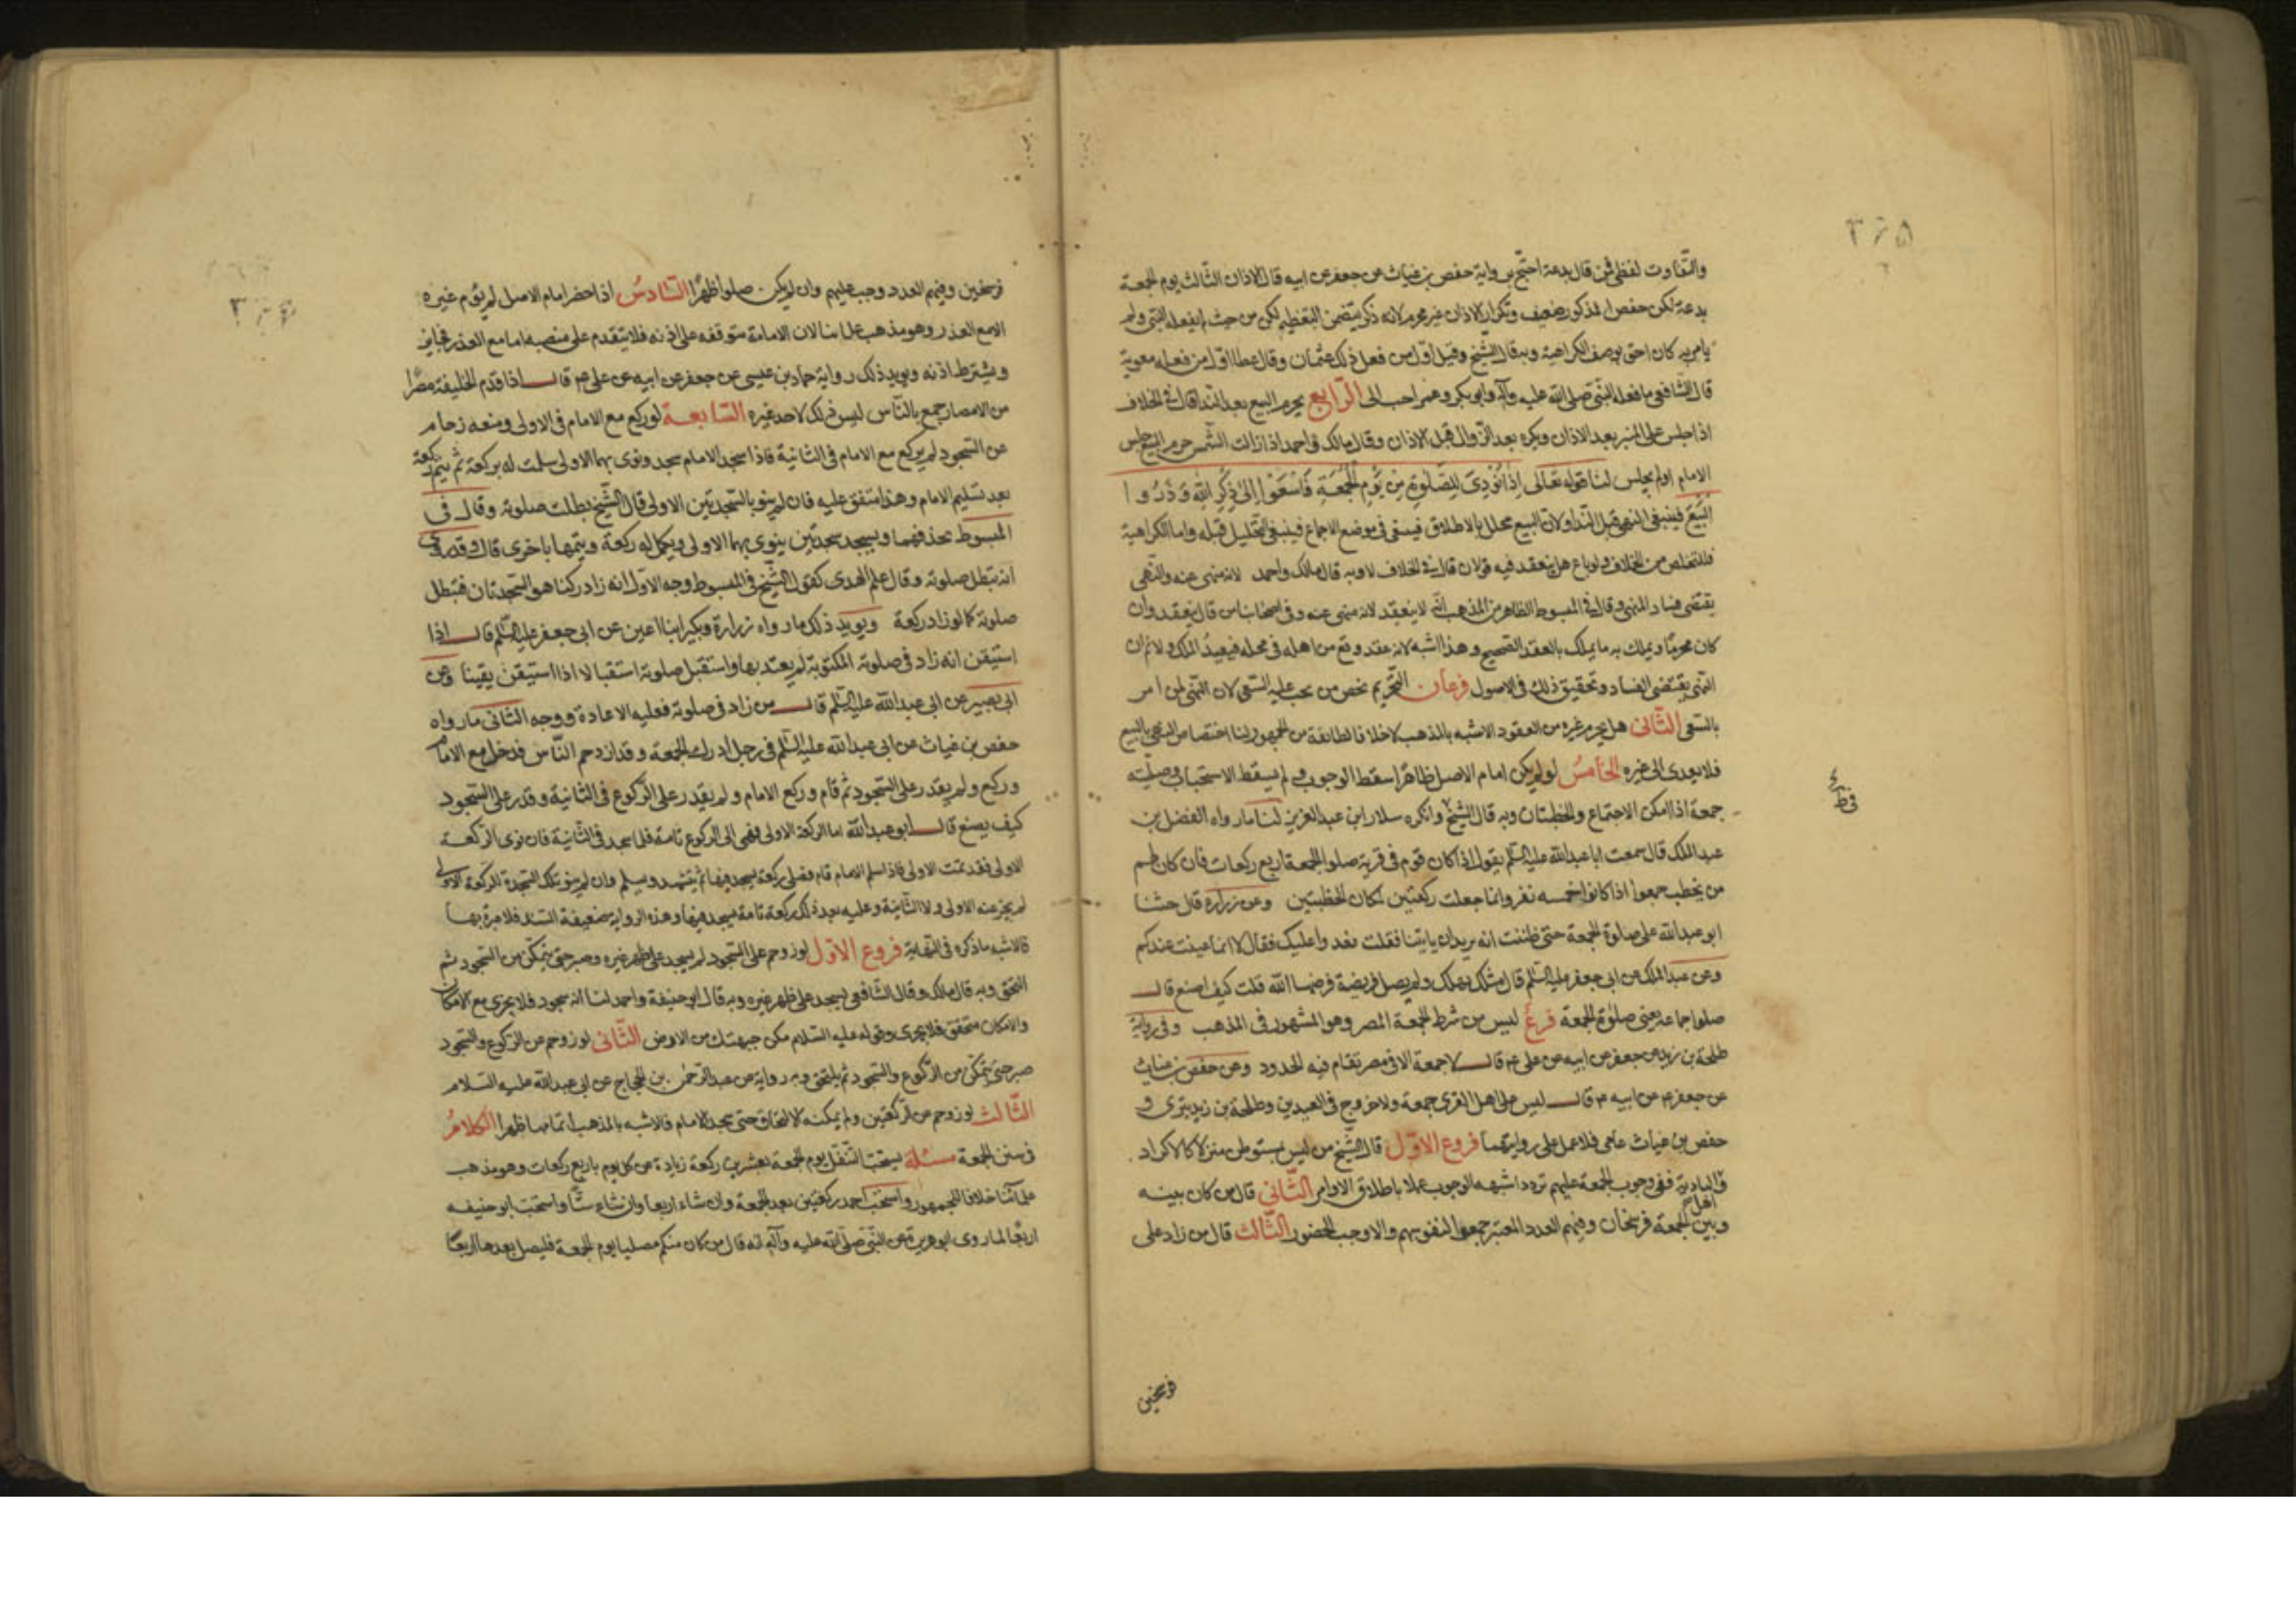 والتفاوت لفظي فمن قال بدعة احتج برواية حفص بن غياث عن جعفر عن ابيه قال الاذان الثالث يوم الجمعة
بدعة لكن حفص المذكور ضعيف وتكرار الاذان غير محرم لانه ذكر يتضمن التعظيم لكن من حيث لم يفعله النبي ولم
يامر به كان احق بوصف الكراهية وبه قال الشيخ وقيل اول من فعل ذلك عثمان وقال عطا اول من فعله معوية
قال الشافعي ما فعله النبي صلى الله عليه وآله وابو بكر وعمر احب الى الرابع يحرم البيع بعد النداء قال في الخلاف
اذا جلس على المنبر بعد الاذان ويكره بعد الزوال قبل الاذان وقال مالك واحمد اذا زالت الشمس حرم البيع جلس
الامام او لم يجلس لنا قوله تعالى اذا نودى للصلوة من يوم الجمعة فاسعوا الى ذكر الله وذروا
البيع فينبغي النهي قبل النداء ولان البيع محلل بالاطلاق فيبقى في موضع الاجماع فينبغي التحليل قبله واما الكراهية
فللتخلص من الخلاف ولو باع هل ينعقد فيه قولان قال في الخلاف لا وبه قال مالك واحمد لانه منهى عنه والنهي
يقتضى فساد المنهى وقال في المبسوط الظاهر من المذهب انه لا ينعقد لانه منهى عنه وفي اصحابنا من قال ينعقد وان
كان محرما ويملك به ما يملك بالعقد الصحيح وهذا اشبه لانه عقد وقع من اهله في محله فيفيد الملك ولا نم ان
النهي يقتضى الفساد وتحقيق ذلك في الاصول فرعان التحريم يخص من يجب عليه السعى لان النهي لمن امر
بالسعى الثاني هل يحرم غيره من العقود الاشبه بالمذهب لا خلافا لطائفة من الجمهور لنا اختصاص النهي بالبيع
فلا يعدى الى غيره الخامس لو لم يكن امام الاصل ظاهرا سقط الوجوب ولم يسقط الاستحباب وصليت
جمعة اذا امكن الاجتماع والخطبتان وبه قال الشيخ وانكره سلار ابن عبد العزيز لنا ما رواه الفضل بن
عبد الملك قال سمعت ابا عبد الله عليه السلم يقول اذا كان قوم في قرية صلوا الجمعة اربع ركعات فان كان لهم
من يخطب جمعوا اذا كانوا خمسه نفر وانما جعلت ركعتين لمكان الخطبتين وعن زرارة قال حثنا
ابو عبد الله على صلوة الجمعة حتى ظننت انه يريد ان ياتينا فقلت نغدوا عليك فقال لا انما عنيت عندكم
وعن عبد الملك عن ابي جعفر عليه السلم قال مثلك يهلك ولم يصل فريضة فرضها الله قلت كيف اصنع قال
صلوا جماعة يعنى صلوة الجمعة فرع ليس من شرط الجمعة المصر وهو المشهور في المذهب وفي رواية
طلحة بن زيد عن جعفر عن ابيه عن علي ع قال لا جمعة الا في مصر تقام فيه الحدود وعن حفص بن غياث
عن جعفر ع عن ابيه ع قال ليس على اهل القرى جمعة ولا خروج في العيدين وطلحة بن زيد بترى و
حفص بن غياث عامى فلا عمل على روايتهما فروع الاول قال الشيخ من ليس بمستوطن منزلا كالاكراد
والبادية ففي وجوب الجمعة عليهم تردد اشبهه الوجوب عملا باطلاق الاوامر الثاني قال من كان بينه
وبين اهل الجمعة فرسخان وفيهم العدد المعتبر جمعوا لنفوسهم والا وجب الحضور الثالث قال من زاد على
فرسخين
فرسخين وفيهم العدد وجب عليهم وان لم يكن صلوا ظهرا السادس اذا حضر امام الاصل لم يؤم غيره
الا مع العذر وهو مذهب علمائنا لان الامامة متوقفه على اذنه فلا يتقدم على منصبه اما مع العذر فجايز
ويشترط اذنه ويويد ذلك رواية حماد بن عيسى عن جعفر عن ابيه عن علي ع قال اذا قدم الخليفة مصرا
من الامصار جمع بالناس ليس ذلك لاحد غيره السابعة لو ركع مع الامام في الاولى ومنعه زحام
عن السجود لم يركع مع الامام في الثانية فاذا سجد الامام سجد ونوى بهما الاولى سلمت له ركعة ثم يتم ركعة
بعد تسليم الامام وهذا متفق عليه فان لم ينو بالسجدتين الاولى قال الشيخ بطلت صلوته وقال في
المبسوط يحذفهما ويسجد سجدتين ينوى بهما الاولى ويكمل له ركعة ويتمها باخرى قال وقد روى
انه تبطل صلوته وقال علم الهدى كقول الشيخ في المبسوط وجه الاول انه زاد ركنا هو السجدتان فتبطل
صلوته كما لو زاد ركعة ويويد ذلك ما رواه زرارة وبكير ابنا اعين عن ابي جعفر عليه السلم قال اذا
استيقن انه زاد في صلوته المكتوبة لم يعتد بها واستقبل صلوته استقبالا اذا استيقن يقينا وعن
ابي بصير عن ابي عبد الله عليه السلم قال من زاد في صلوته فعليه الاعادة ووجه الثاني ما رواه
حفص بن غياث عن ابي عبد الله عليه السلم في رجل ادرك الجمعة وقد ازدحم الناس فدخل مع الامام
وركع ولم يقدر على السجود ثم قام وركع الامام ولم يقدر على الركوع في الثانية وقدر على السجود
كيف يصنع قال ابو عبد الله اما الركعة الاولى فهى الى الركوع تامة فلما سجد في الثانية فان نوى الركعة
الاولى فقد تمت الاولى فاذا سلم الامام قام فصلى ركعة يسجد فيها ثم يتشهد ويسلم وان لم ينو تلك السجدة للركعة الاولى
لم يجز عنه الاولى ولا الثانية وعليه بعد ذلك ركعة تامة يسجد فيها وهذه الرواية ضعيفة السند فلا عبرة بها
فالاشبه ما ذكره في النهاية فروع الاول لو زوحم على السجود لم يسجد على ظهر غيره وصبر حتى يتمكن من السجود ثم
التحق وبه قال مالك وقال الشافعي يسجد على ظهر غيره وبه قال ابو حنيفة واحمد لنا انه سجود فلا يجزى مع الامكان
والامكان متحقق فلا يجزى وقوله عليه السلام مكن جبهتك من الارض الثاني لو زوحم عن الركوع والسجود
صبر حتى يتمكن من الركوع والسجود ثم يلتحق وبه رواية عن عبد الرحمن بن الحجاج عن ابي عبد الله عليه السلام
الثالث لو زوحم عن الركعتين ولم يمكنه الالتحاق حتى سجد الامام فالاشبه بالمذهب اتمامها ظهرا الكلام
في سنن الجمعة مسئلة يستحب التنفل يوم الجمعة بعشرين ركعة زيادة عن كل يوم باربع ركعات وهو مذهب
علمائنا خلافا للجمهور واستحب احمد ركعتين بعد الجمعة وان شاء اربعا وان شاء ستا واستحب ابو حنيفه
اربعا لما روى ابو هريرة عن النبي صلى الله عليه وآله انه قال من كان منكم مصليا يوم الجمعة فليصل بعدها اربعا